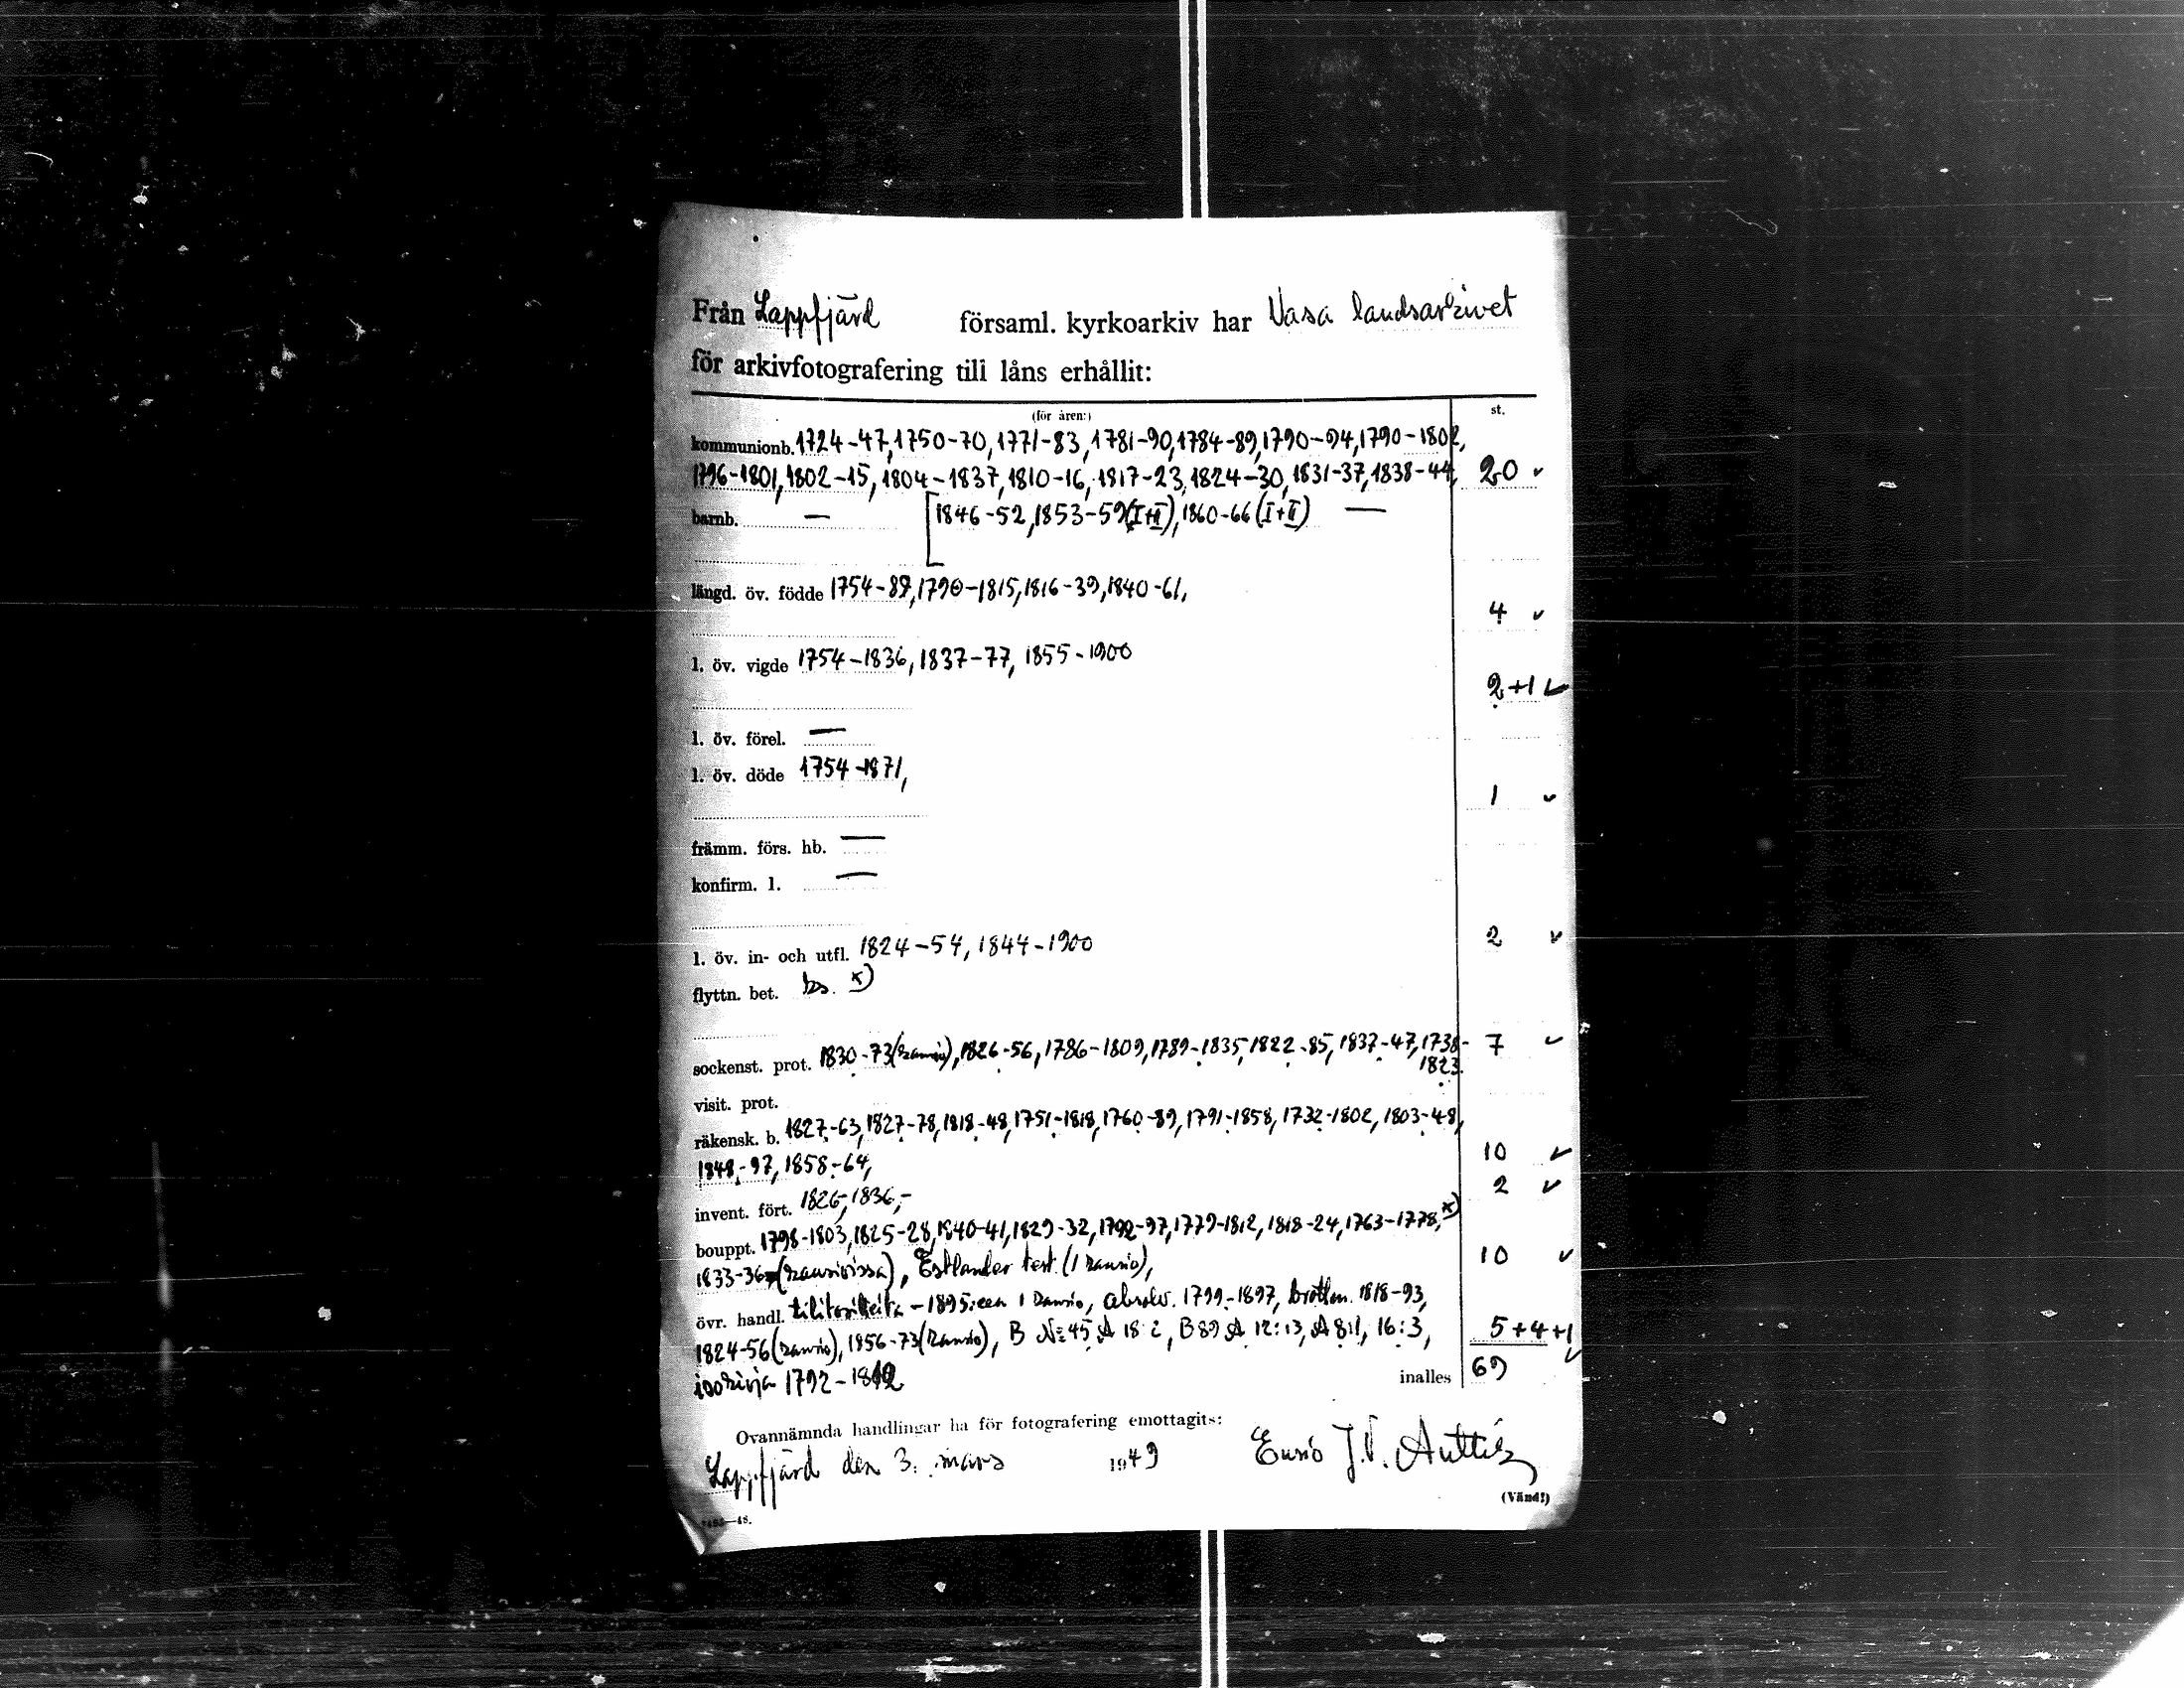 Från Lappfjärd församl. kyrkoarkiv har Vasa landsarkivet
för arkivfotografering till låns erhållit:
(för åren:) st.
kommunionb. 1724-47, 1750-70, 1771-83, 1781-90, 1784-89, 1790-94, 1790-1802,
1796-1801, 1802-15, 1804-1837, 1810-16, 1817-23, 1824-30, 1831-37, 1838-44, 20 ✓
barnb. — [1846-52, 1853-59 (I+II), 1860-66 (I+II) —
längd. öv. födde 1754-89, 1790-1815, 1816-39, 1840-61,
4 ✓
l. öv. vigde 1754-1836, 1837-77, 1855-1900
2+1 ✓
l. öv. förel. —
l. öv. döde 1754-1871,
1 ✓
främm. förs. hb. —
konfirm. l. —
l. öv. in- och utfl. 1824-54, 1844-1900 2 ✓
flyttn. bet. x)
sockenst. prot. 1830-73 (kansio), 1826-56, 1786-1809, 1789-1835, 1822-85, 1837-47, 1738- 7 ✓
1823.
visit. prot.
räkensk. b. 1827-63, 1827-78, 1818-48, 1751-1818, 1760-89, 1791-1858, 1732-1802, 1803-48,
1848-97, 1858-64, 10 ✓
invent. fört. 1826, 1836,- 2 ✓
bouppt. 1798-1803, 1825-28, 1840-41, 1829-32, 1792-97, 1779-1812, 1818-24, 1763-1778, x)
1833-36 (kansioissa), Estlander test. (1 kansio), 10 ✓
övr. handl. tilitositteita -1895:een 1 kansio, absolv. 1799-1897, brottm. 1818-93,
1824-56 (kansio), 1856-73 (kansio), B № 45, A 18:2, B 89, A 12:13, A 8:1, 16:3, 5+4+1 ✓
1792-1812 inalles 69
Ovannämnda handlingar ha för fotografering emottagits:
Lappfjärd den 3. mars 1949 Ensio J.V. Anttila
(Vänd!)